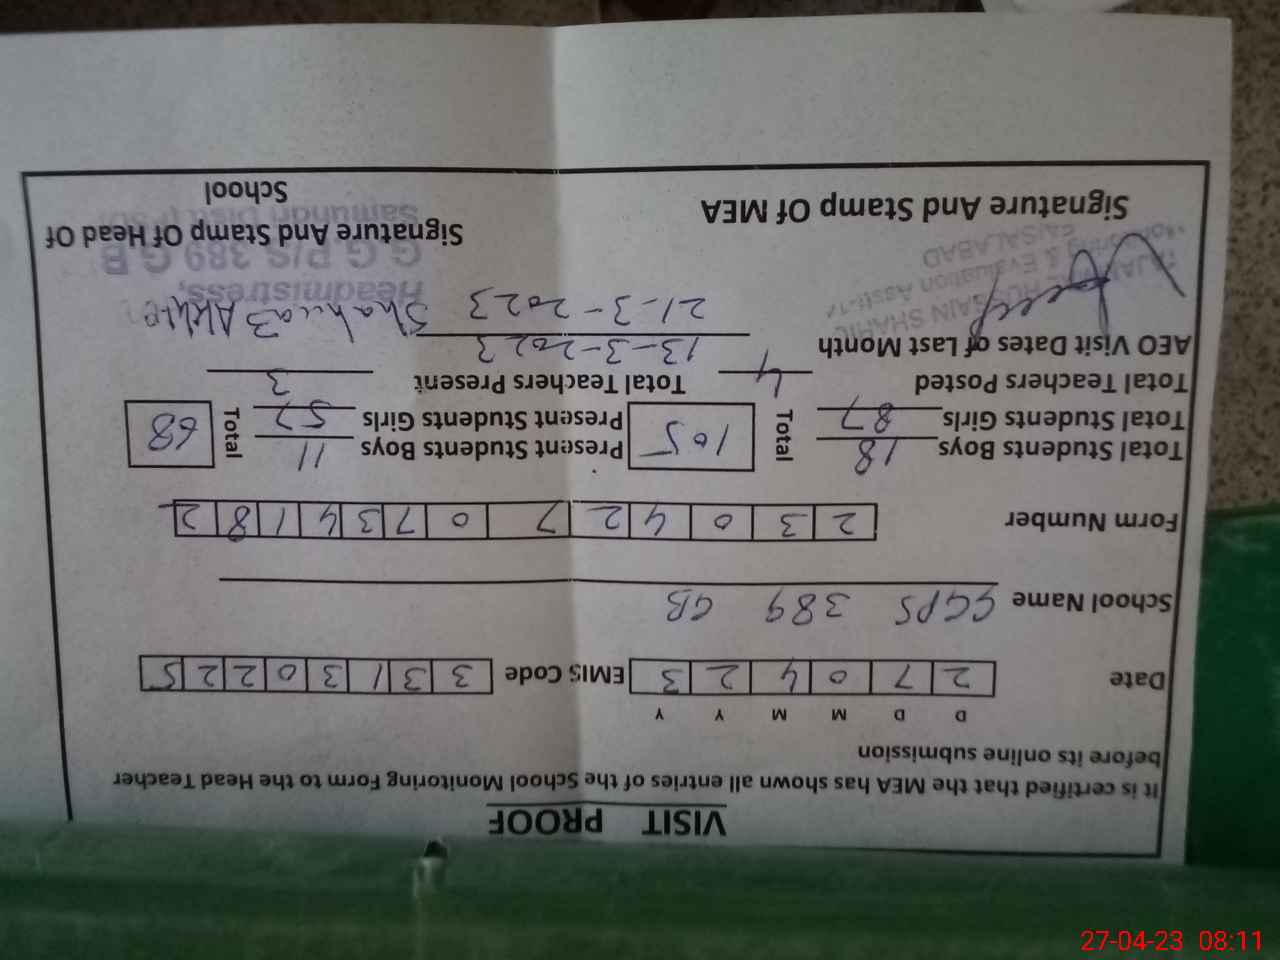 VISIT PROOF
It is certified that the MEA has shown all entries of the School Monitoring Form to the Head Teacher
before its online submission
D D M M Y Y
Date 2 7 0 4 2 3 EMIS Code 3 3 1 3 0 2 2 5
School Name GGPS 389 GB
Form Number 2 3 0 4 2 7 0 7 3 4 1 8 2
Total Students Boys 18 Total 105 Present Students Boys 11 Total 68
Total Students Girls 87 Present Students Girls 57
Total Teachers Posted 4 Total Teachers Present 3
AEO Visit Dates of Last Month 13-3-2023
21-3-2023
HUSSAIN SHARIF
Monitoring & Evaluation Asstt
FAISALABAD
Headmistress,
G.G.P/S. 389 G.B
Samundri Distt
Signature And Stamp Of MEA Signature And Stamp Of Head Of
School
27-04-23 08:11